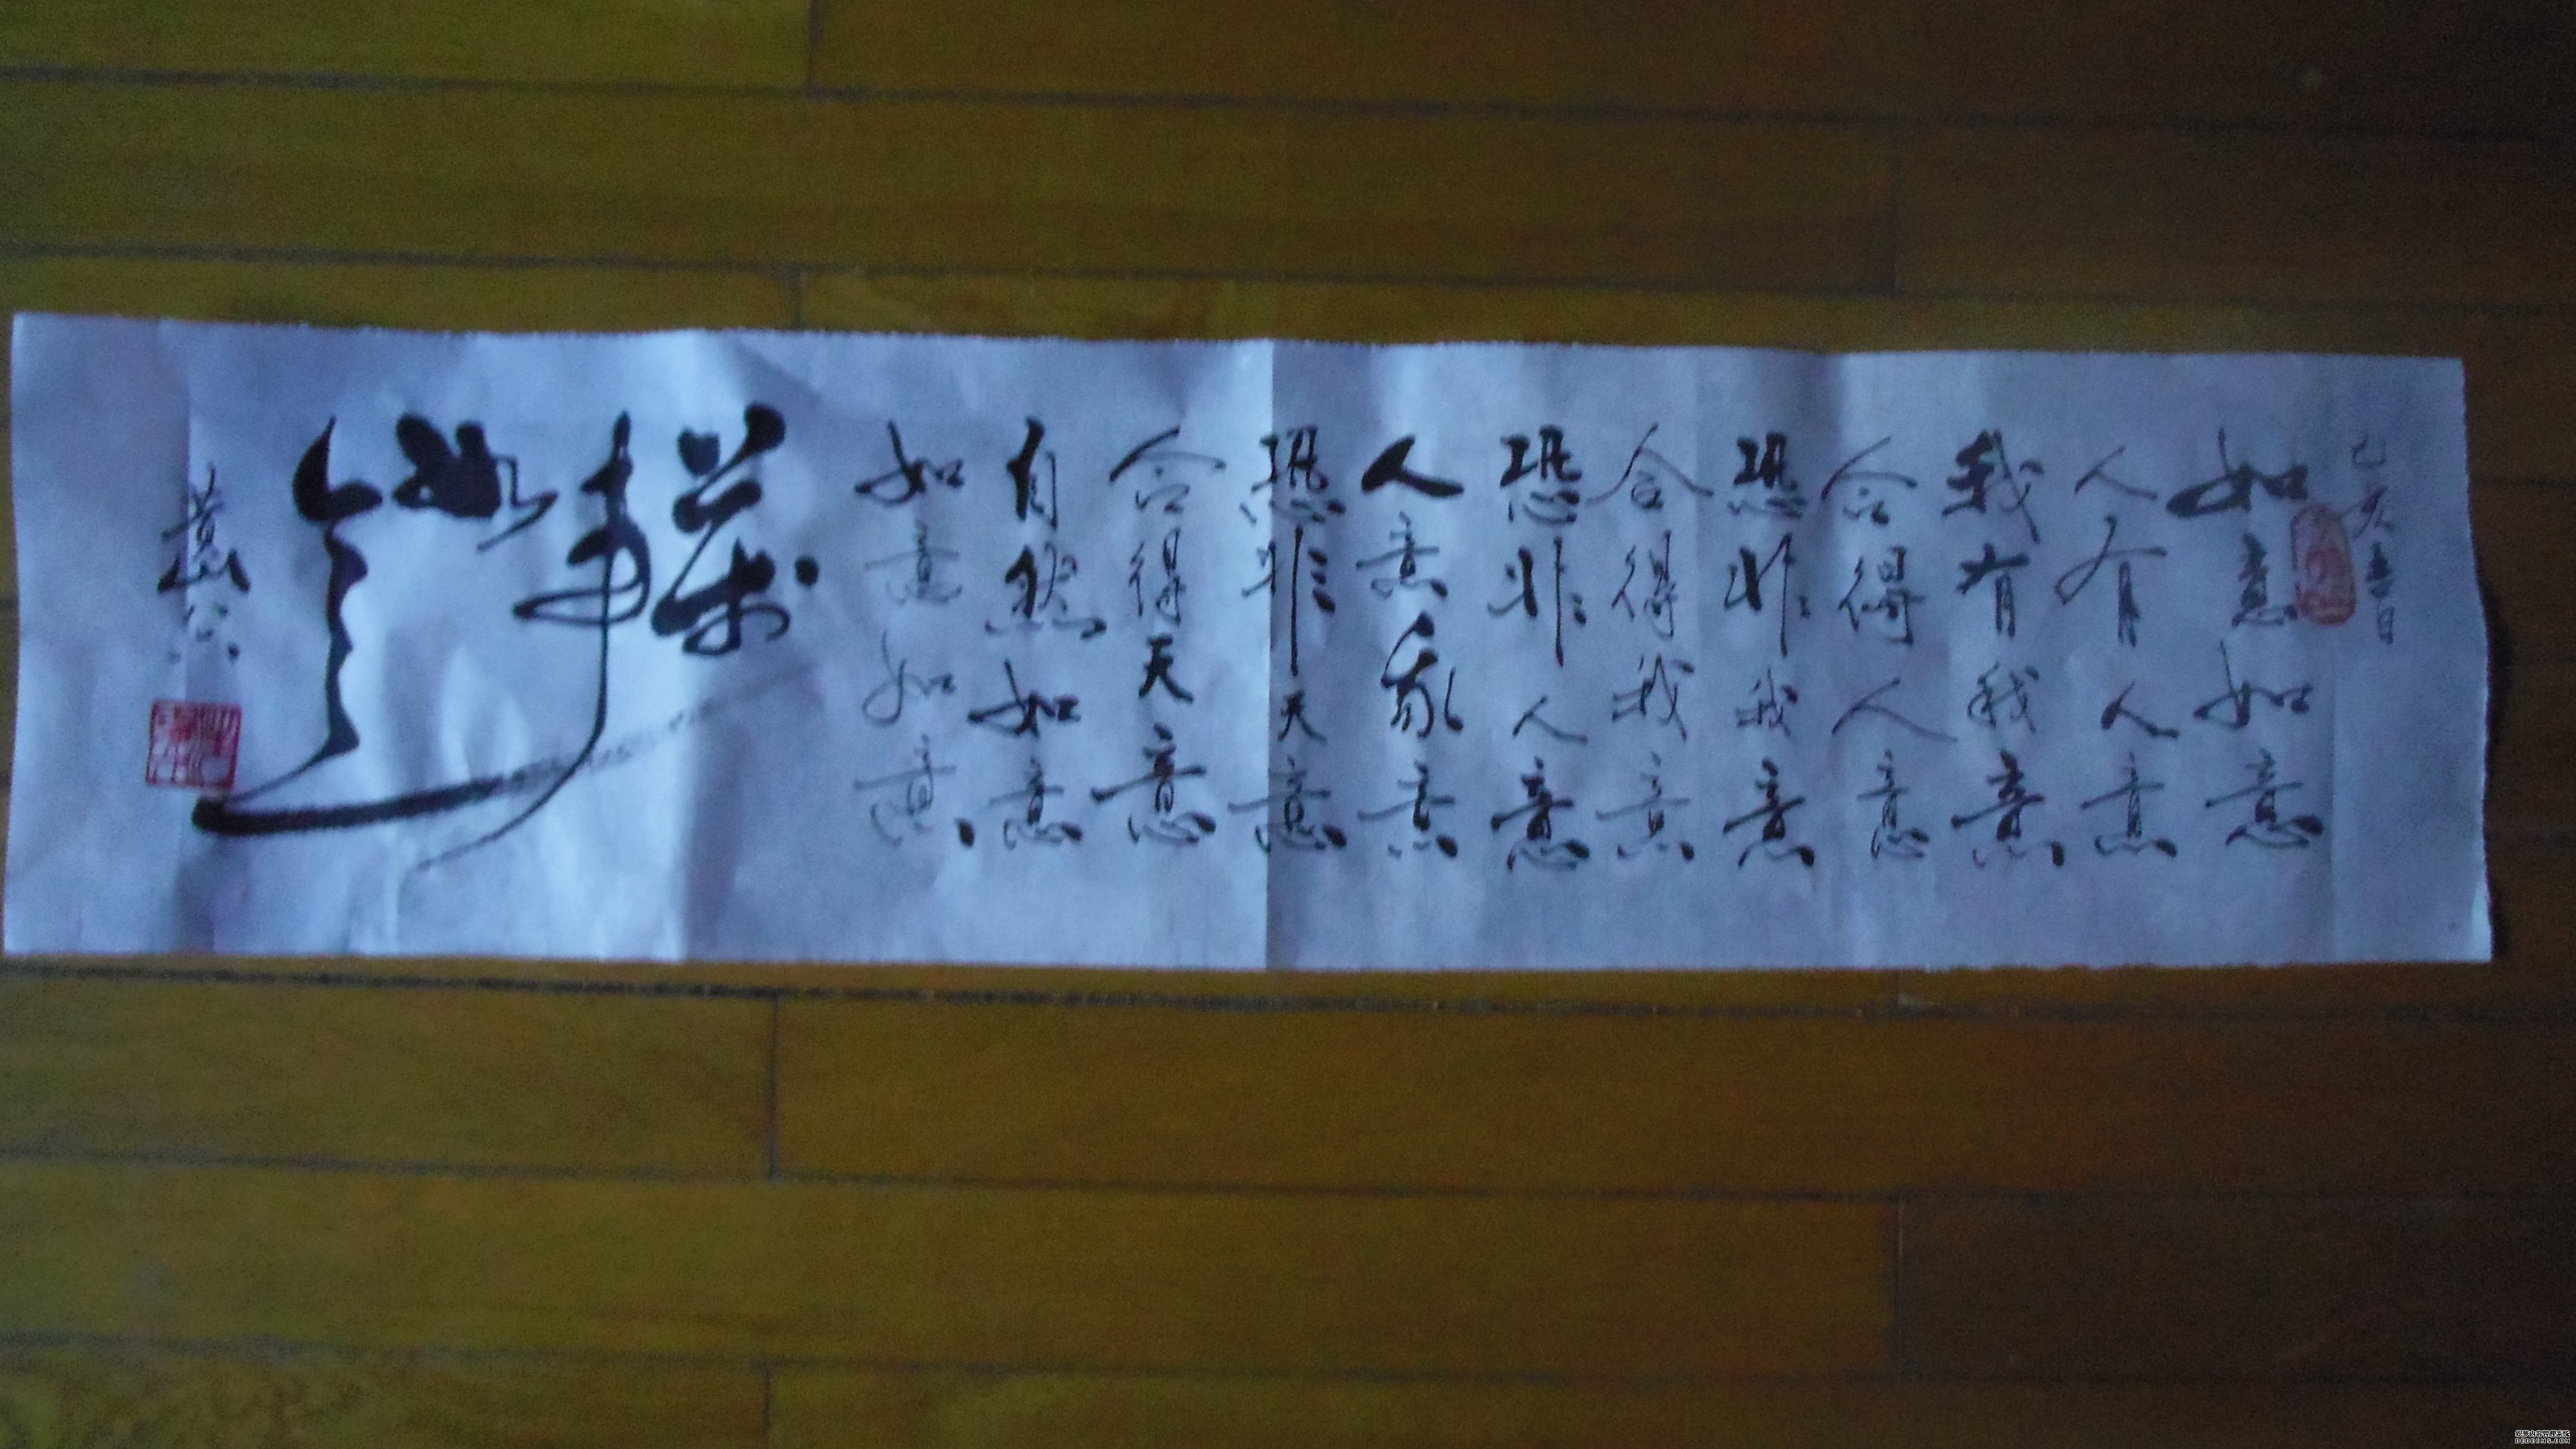 己亥春日
如意如意
人有人意
我有我意
合得人意
恐非我意
合得我意
恐非人意
人意我意
恐非天意
合得天意
自然如意
如意如意
萬事如意
黄山公
DEDECMS.COM